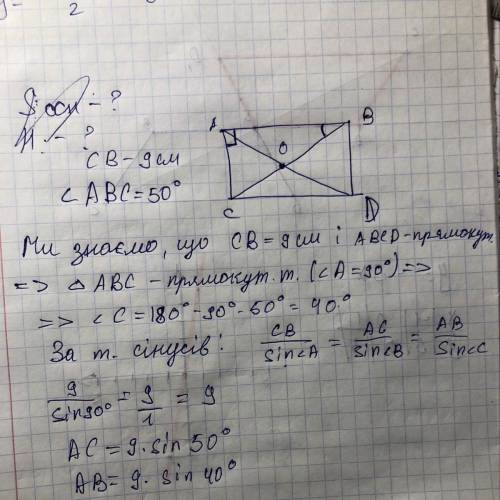 2
Sосн - ?
H. - ?
CB - 9 см
∠ABC = 50°
A
B
O
C
D
Ми знаємо, що CB = 9 см і ABCD - прямокут.
=> △ ABC - прямокут. т. (∠A = 90°) =>
=> ∠C = 180° - 90° - 50° = 40°
За т. сінусів: CB/sin∠A = AC/sin∠B = AB/sin∠C
9/sin90° = 9/1 = 9
AC = 9 · sin 50°
AB = 9 · sin 40°